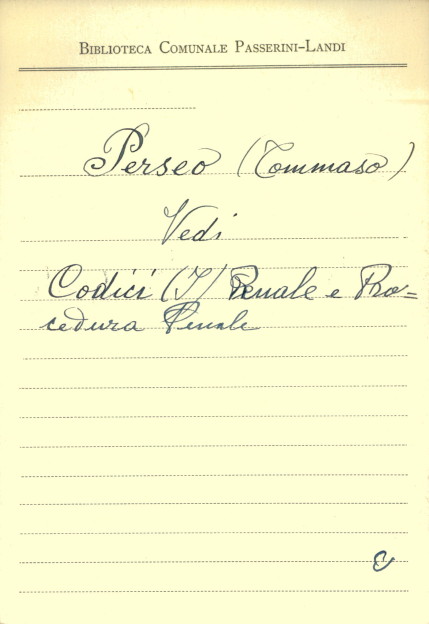 BIBLIOTECA COMUNALE PASSERINI-LANDI
Perseo (Tommaso)
Vedi
Codici (I) Penale e Pro=
cedura Penale
C